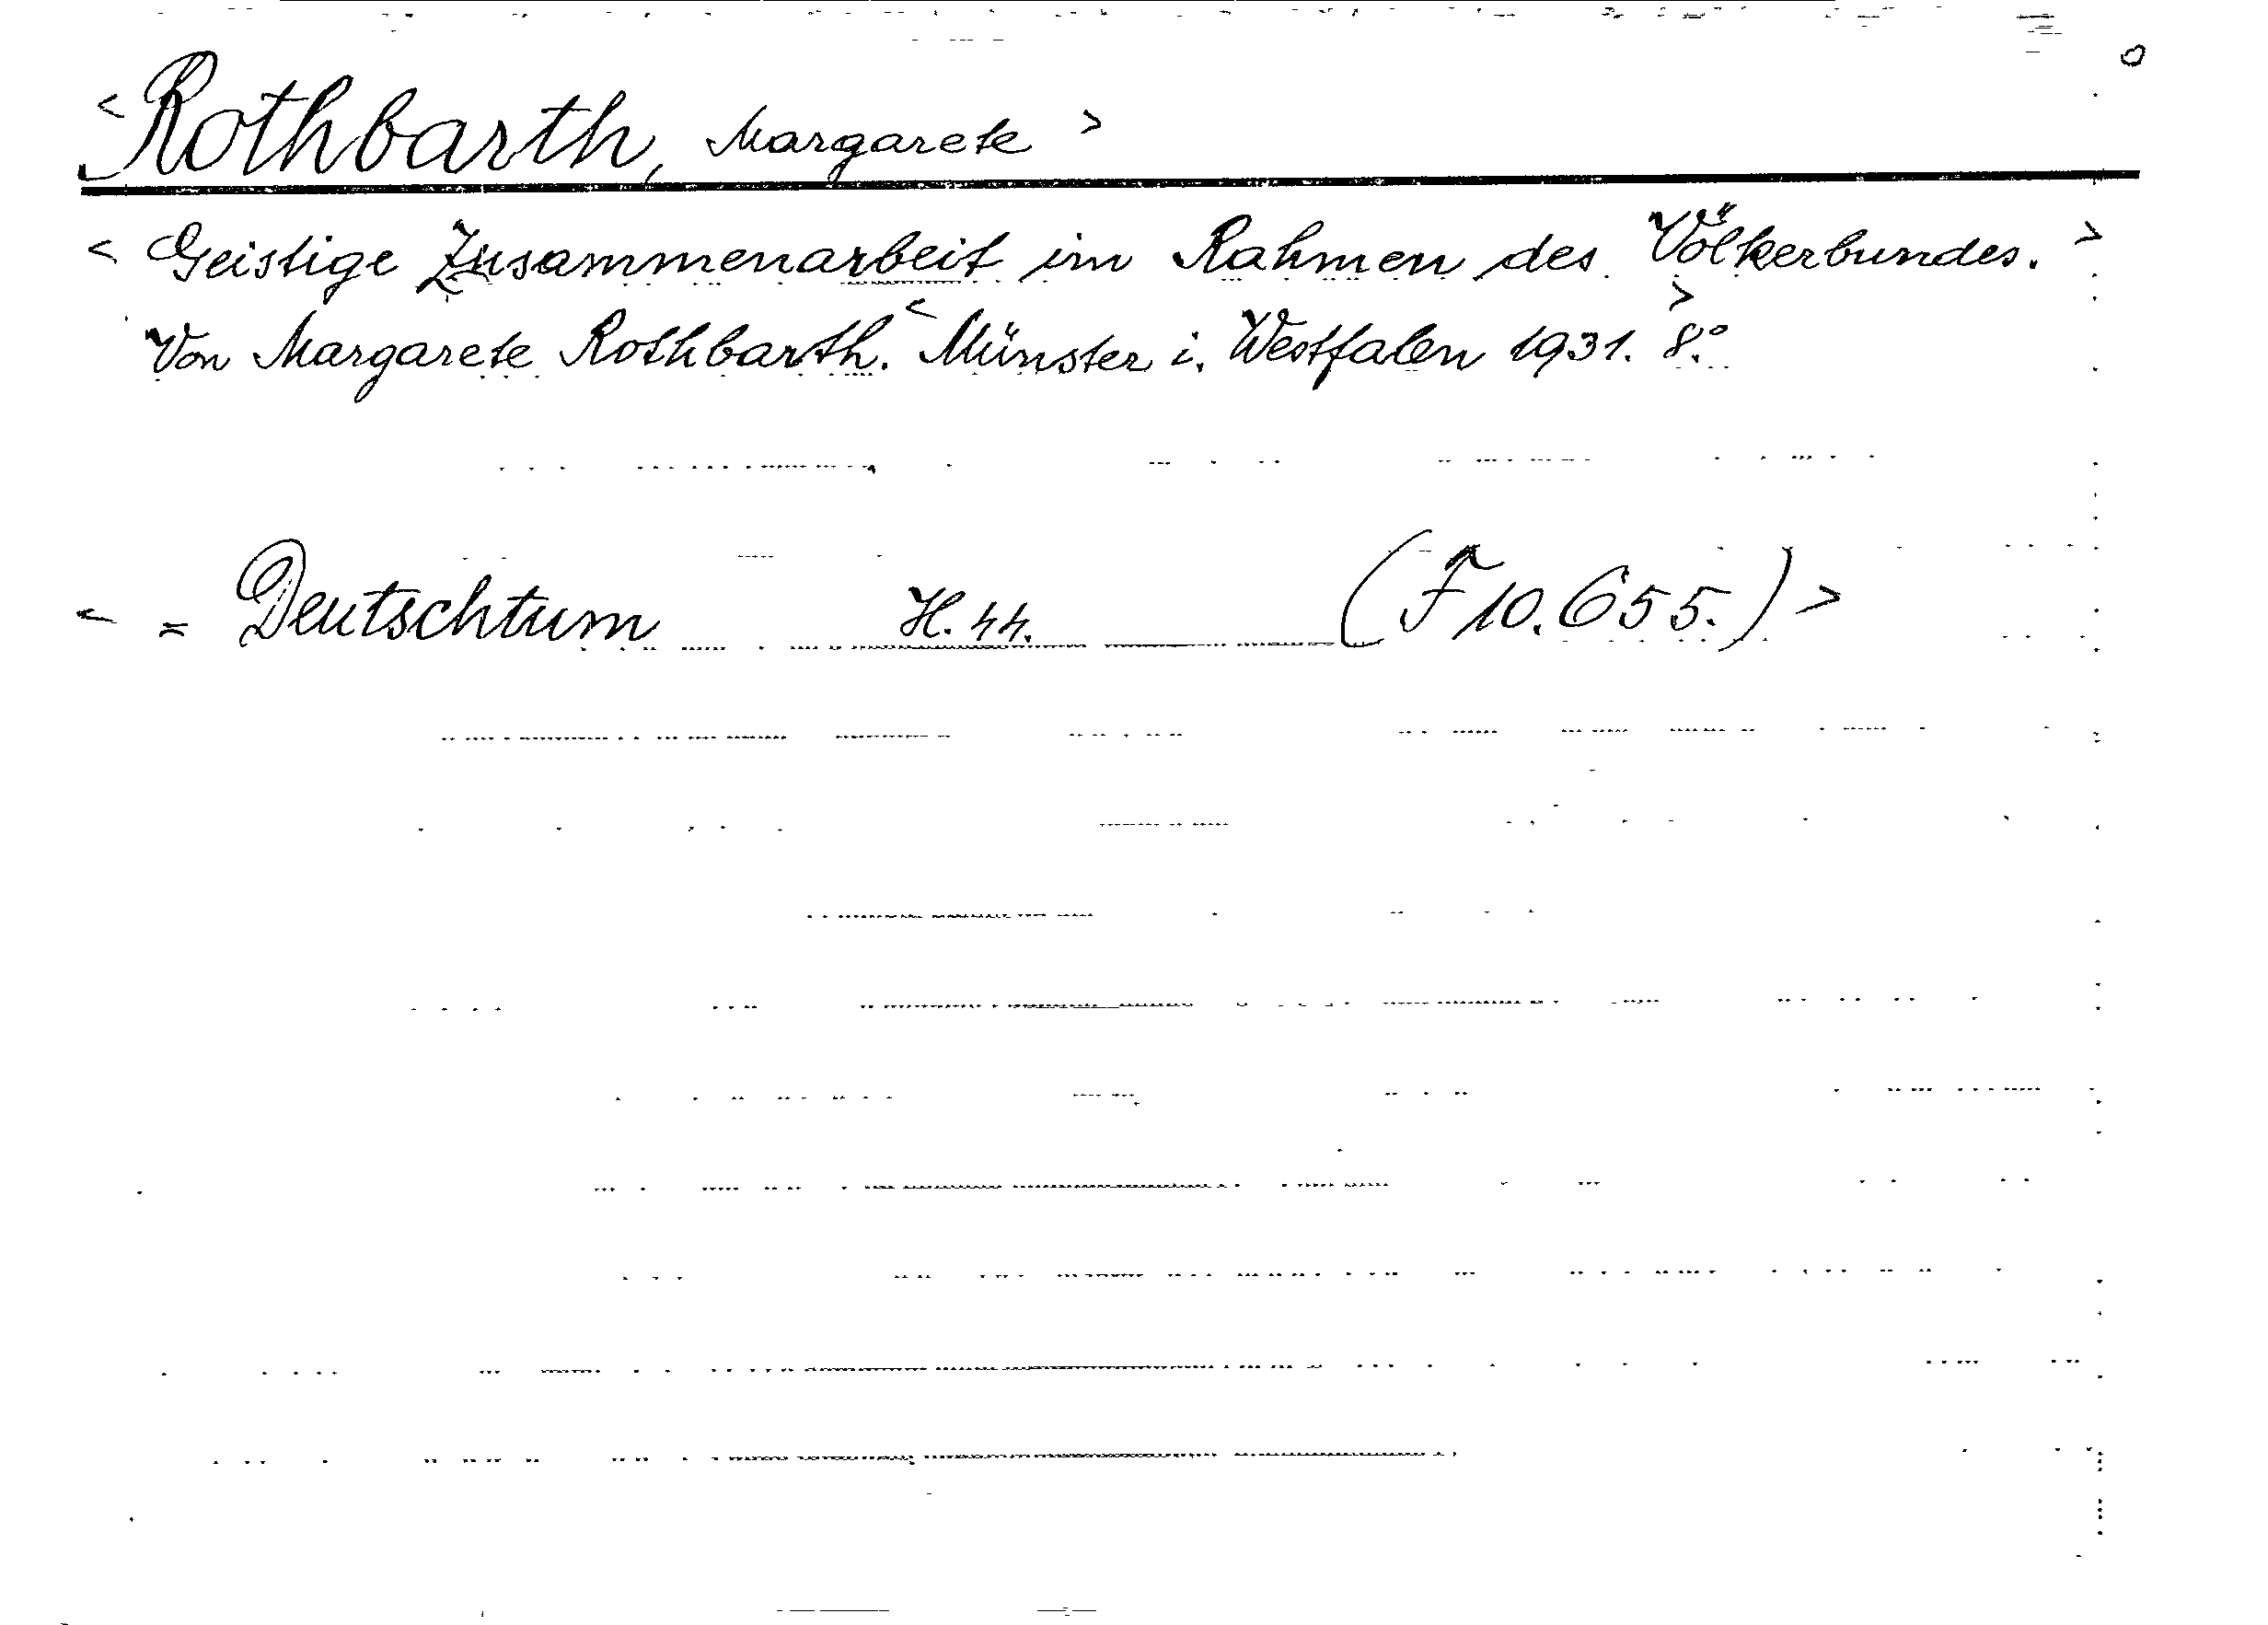 < Rothbarth, Margarete >
< Geistige Zusammenarbeit im Rahmen des Völkerbundes. >
Von Margarete Rothbarth. < Münster i. Westfalen 1931. > 8.°
< = Deutschtum H. 44. (F 10.655.) >